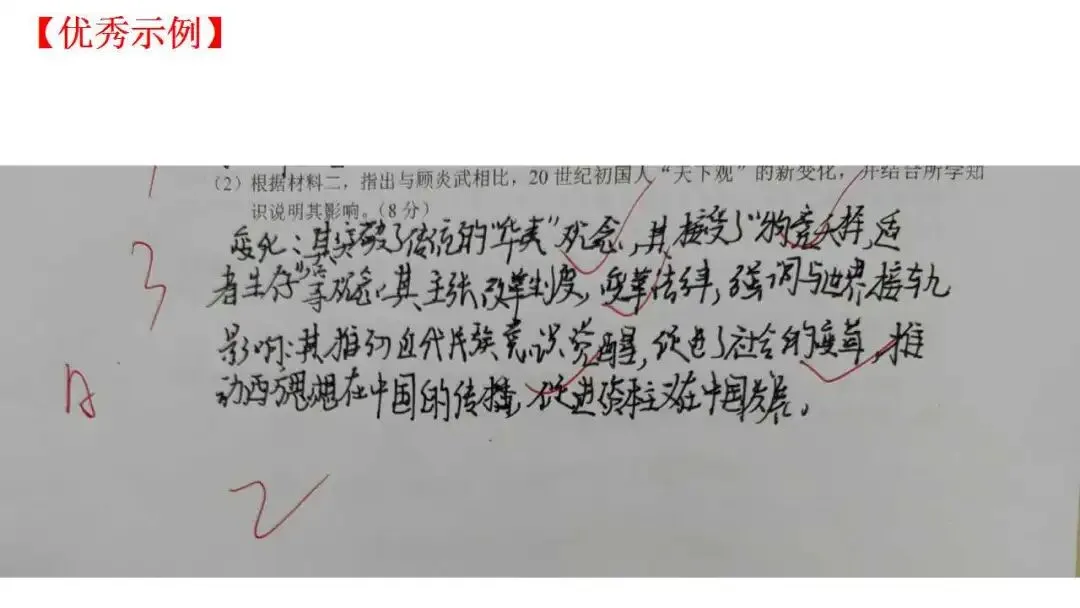 【优秀示例】
(2) 根据材料二，指出与顾炎武相比，20 世纪初国人“天下观”的新变化，并结合所学知
识说明其影响。(8 分)
变化：其突破了传统的“华夷”观念，其接受了“物竞天择，适
者生存”等观念，其主张改革制度，变革法律，强调与世界接轨
影响：其推动近代民族意识觉醒，促进了社会的变革，推
动西方思想在中国的传播，促进资本主义在中国发展。
3
2